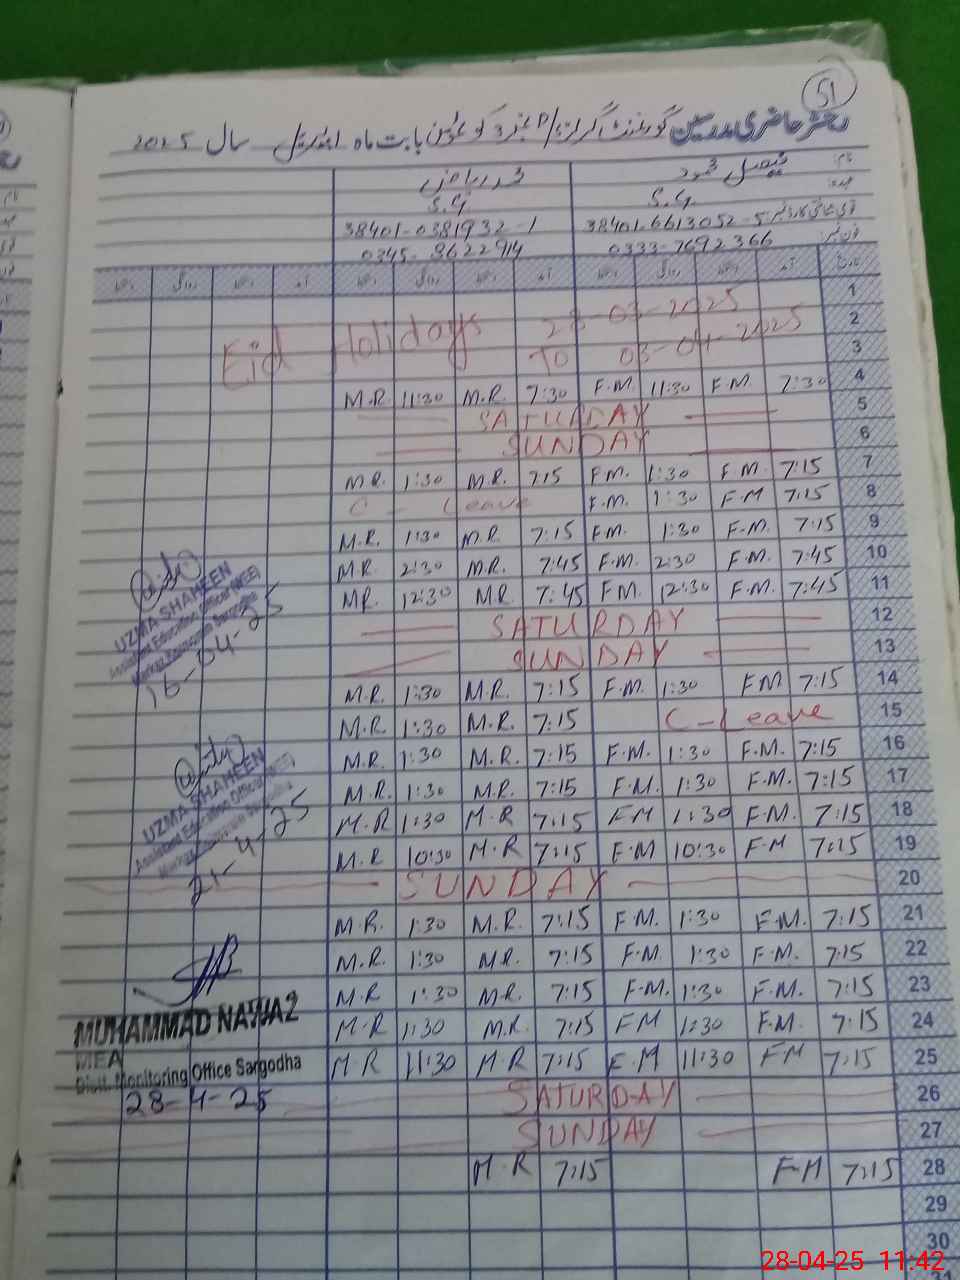 51
رجسٹر حاضری مدرسین گورنمنٹ گرلز بابت ماہ اپریل سال 2025
نام: فیصل محمود محمد ریاض
عہدہ: S.G S.G
قومی شناختی کارڈ نمبر: 38401-6613052-5 38401-0381932-1
فون نمبر: 0333-7692366 0345-8622914
تاریخ آمد دستخط روانگی دستخط آمد دستخط روانگی دستخط آمد دستخط روانگی دستخط
1
Eid Holidays 28-03-2025 2
To 03-04-2025 3
M.R. 11:30 M.R. 7:30 F.M. 11:30 F.M. 7:30 4
SATURDAY 5
SUNDAY 6
M.R. 1:30 M.R. 7:15 F.M. 1:30 F.M. 7:15 7
C - Leave F.M. 1:30 F.M 7:15 8
M.R. 1:30 M.R. 7:15 F.M. 1:30 F.M. 7:15 9
MR. 2:30 MR. 7:45 F.M. 2:30 F.M. 7:45 10
MR. 12:30 MR 7:45 FM 12:30 F.M. 7:45 11
SATURDAY 12
SUNDAY 13
M.R. 1:30 M.R. 7:15 F.M. 1:30 FM 7:15 14
M.R. 1:30 M.R. 7:15 C-Leave 15
M.R. 1:30 M.R. 7:15 F.M. 1:30 F.M. 7:15 16
M.R. 1:30 M.R. 7:15 F.M. 1:30 F.M. 7:15 17
M.R 1:30 M.R 7:15 FM 1:30 F.M. 7:15 18
M.R 10:30 M.R 7:15 F.M 10:30 F.M 7:15 19
SUNDAY 20
M.R. 1:30 M.R. 7:15 F.M. 1:30 F.M. 7:15 21
M.R. 1:30 M.R. 7:15 F.M. 1:30 F.M. 7:15 22
M.R 1:30 M.R. 7:15 F.M. 1:30 F.M. 7:15 23
M.R 1:30 M.R. 7:15 FM 1:30 F.M. 7:15 24
M.R 11:30 M.R 7:15 F.M 11:30 FM 7:15 25
SATURDAY 26
SUNDAY 27
M.R 7:15 F.M 7:15 28
29
30
UZMA SHAHEEN
Assistant Education Officer (WEE)
Markaz Sargodha
16-04-25
UZMA SHAHEEN
Assistant Education Officer
21-4-25
MUHAMMAD NAWAZ
MEA
Distt. Monitoring Office Sargodha
28-4-25
28-04-25 11:42